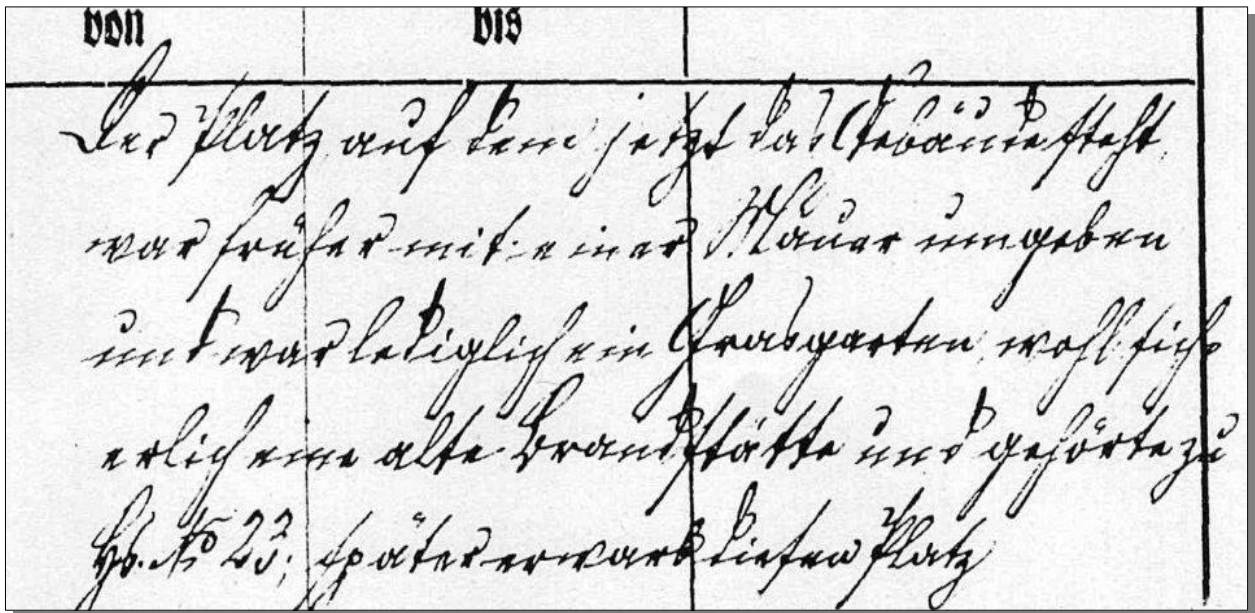 von bis
Der Platz auf dem jetzt das Gebäude steht
war früher mit einer Mauer umgeben
und war lediglich ein Grasgarten, wohl sich=
erlich eine alte Brandstätte und gehörte zu
Hs. No 23; später erwarb diesen Platz